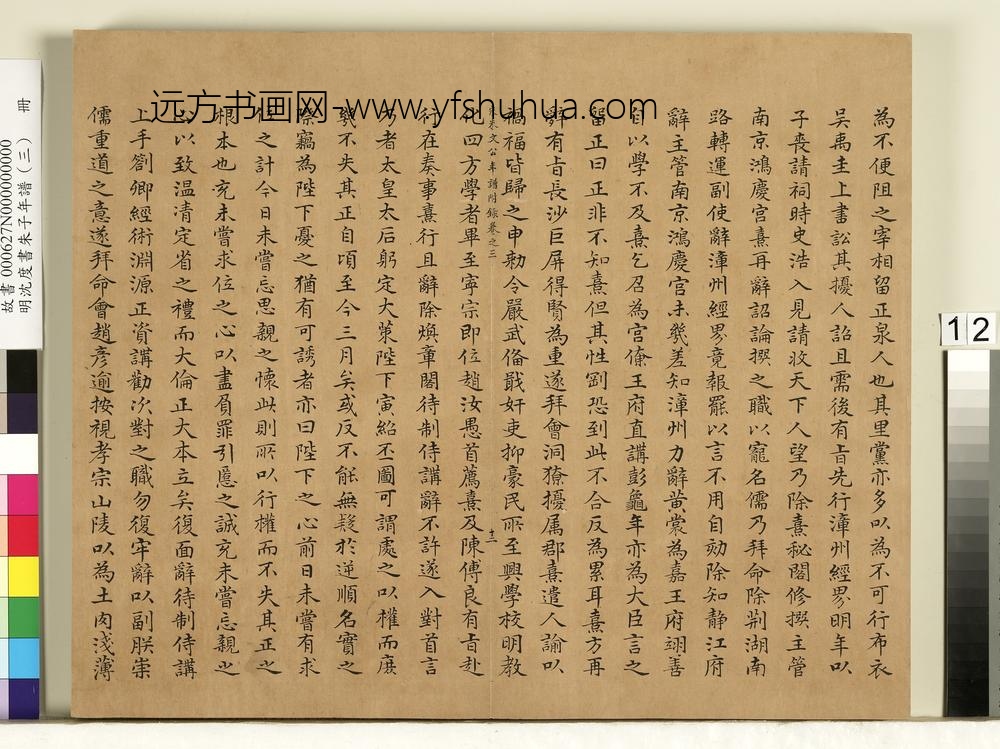 為不便阻之宰相留正泉人也其里黨亦多以為不可行布衣
吳禹圭上書訟其擾人詔且需後有旨先行漳州經界明年以
子喪請祠時史浩入見請收天下人望乃除熹秘閣修撰主管
南京鴻慶宮熹再辭詔論撰之職以寵名儒乃拜命除荆湖南
路轉運副使辭漳州經界竟報罷以言不用自劾除知静江府
辭主管南京鴻慶宮未幾差知潭州力辭黄裳為嘉王府翊善
自以學不及熹乞召為宮僚王府直講彭龜年亦為大臣言之
留正曰正非不知熹但其性剛恐到此不合反為累耳熹方再
辭有旨長沙巨屏得賢為重遂拜會洞獠擾属郡熹遣人諭以
禍福皆歸之申勑令嚴武俻戢奸吏抑豪民所至興學校明教
朱文公年譜附錄卷之三
十二
化四方學者畢至寧宗即位趙汝愚首薦熹及陳傅良有旨赴
行在奏事熹行且辭除煥章閣待制侍講辭不許遂入對首言
乃者太皇太后躬定大策陛下寅紹丕圖可謂處之以權而庶
幾不失其正自頃至今三月矣或反不能無疑於逆順名實之
際竊為陛下憂之猶有可諉者亦曰陛下之心前日未嘗有求
位之計今日未嘗忘思親之懷此則所以行權而不失其正之
根本也充未嘗求位之心以盡負罪引慝之誠充未嘗忘親之
心以致温凊定省之禮而大倫正大本立矣復面辭待制侍講
上手劄卿經術淵源正資講勸次對之職勿復牢辭以副朕崇
儒重道之意遂拜命會趙彦逾按視孝宗山陵以為土肉淺薄
远方书画网-www.yfshuhua.com
故書 000627N000000000
明沈度書朱子年譜(三) 冊
12